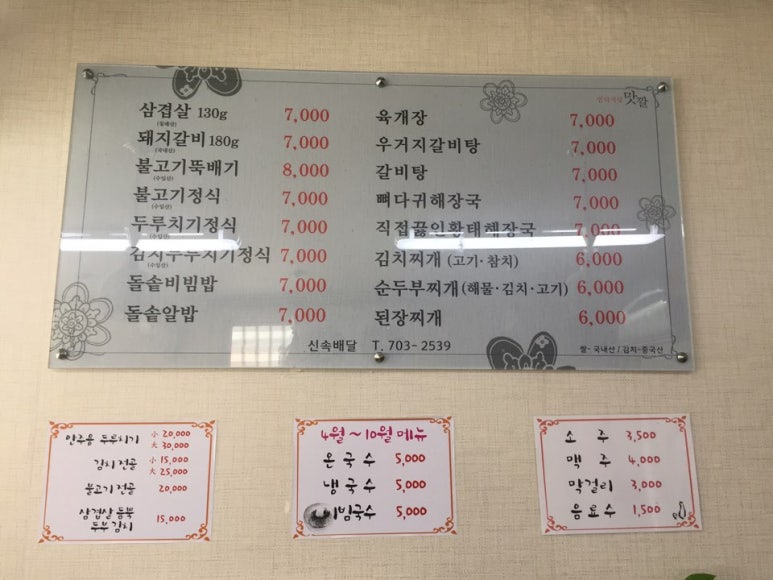 맛깔
삼겹살 130g 7,000
돼지갈비 180g 7,000
(국내산)
불고기뚝배기 8,000
(수입산)
불고기정식 7,000
(수입산)
두루치기정식 7,000
(수입산)
김치두루치기정식 7,000
(수입산)
돌솥비빔밥 7,000
돌솥알밥 7,000
육개장 7,000
우거지갈비탕 7,000
갈비탕 7,000
뼈다귀해장국 7,000
직접끓인황태해장국 7,000
김치찌개 (고기·참치) 6,000
순두부찌개 (해물·김치·고기) 6,000
된장찌개 6,000
신속배달 T. 703-2539
쌀-국내산 / 김치-중국산
안주용 두루치기 小 20,000
大 30,000
김치전골 小 15,000
大 25,000
불고기전골 20,000
삼겹살듬뿍
두부김치 15,000
4월~10월 메뉴
온국수 5,000
냉국수 5,000
비빔국수 5,000
소주 3,500
맥주 4,000
막걸리 3,000
음료수 1,500